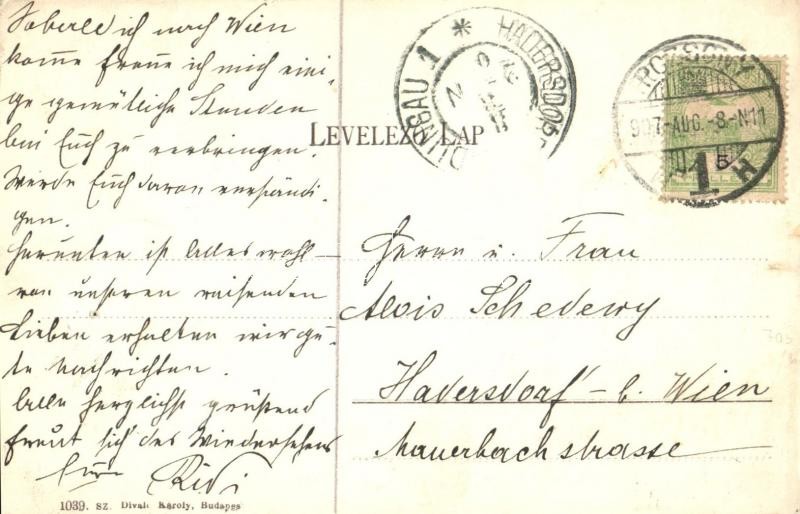 Sobald ich nach Wien
komme freue ich mich eini-
ge gemütliche Stunden
bei Euch zu verbringen.
Werde Euch davon verständi-
gen.
Herunten ist alles wohl
von unseren reisenden
Lieben erhalten wir gu-
te Nachrichten.
Alle herzlichst grüßend
freut sich des Wiedersehens
Eure
LEVELEZŐ-LAP
HADERSDORF
1
POZSONY
907-AUG.-8-N11
5
Herrn u. Frau
Alois Schedewy
Hadersdorf - b. Wien
Mauerbachstrasse
1039. sz. Divald Károly, Budapest